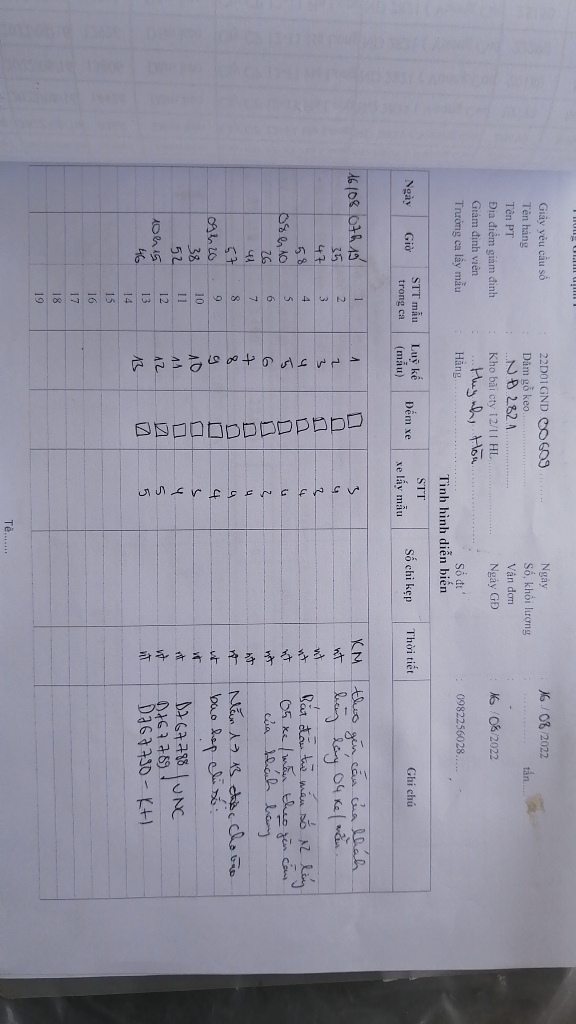 Giấy yêu cầu số : 22D01GND 00609 Ngày : 16 / 08 /2022
Tên hàng : Dăm gỗ keo Số, khối lượng : tấn
Tên PT : NĐ 2821 Vận đơn : -
Địa điểm giám định : Kho bãi cty 12/11 HL Ngày GĐ : 16 / 08 /2022
Giám định viên : Huynh, Hòa
Trưởng ca lấy mẫu : Hằng Số đt : 0982256028
Tình hình diễn biến
Ngày Giờ STT mẫu trong ca Luỹ kế (mẫu) Đếm xe STT xe lấy mẫu Số chì kẹp Thời tiết Ghi chú
16/08 07h15 1 1 □ 3 KM theo yêu cầu của khách
35 2 2 □ 4 nt hàng lấy 04 xe/mẫu.
47 3 3 □ 2 nt
58 4 4 □ 4 nt Bắt đầu từ mẫu số 12 lấy
08h10 5 5 □ 4 nt 05 xe/mẫu theo yêu cầu
26 6 6 □ 2 nt của khách hàng
41 7 7 □ 4 nt
57 8 8 □ 4 nt Mẫu 1 → 13 được cho vào
09h20 9 9 □ 4 nt bao hợp chì số:
38 10 10 □ 3 nt
52 11 11 □ 4 nt D767788 / VNC
10h15 12 12 5 nt D767789
46 13 13 5 nt D767790 - K+1
14
15
16
17
18
19
Tê.......